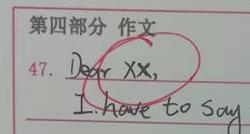 第四部分 作文
47. Dear XX,
I have to say